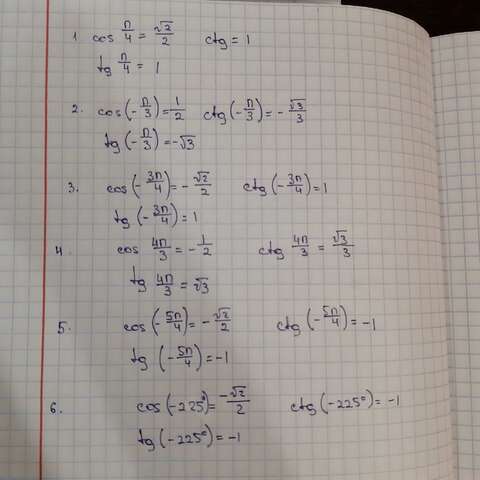 1 cos п/4 = √2/2 ctg = 1
tg п/4 = 1
2. cos(-п/3) = 1/2 ctg(-п/3) = -√3/3
tg(-п/3) = -√3
3. cos(-3п/4) = -√2/2 ctg(-3п/4) = 1
tg(-3п/4) = 1
4 cos 4п/3 = -1/2 ctg 4п/3 = √3/3
tg 4п/3 = √3
5. cos(-5п/4) = -√2/2 ctg(-5п/4) = -1
tg(-5п/4) = -1
6. cos(-225°) = -√2/2 ctg(-225°) = -1
tg(-225°) = -1